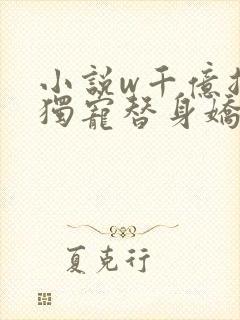 小說w千億
獨寵替身嬌
夏克行